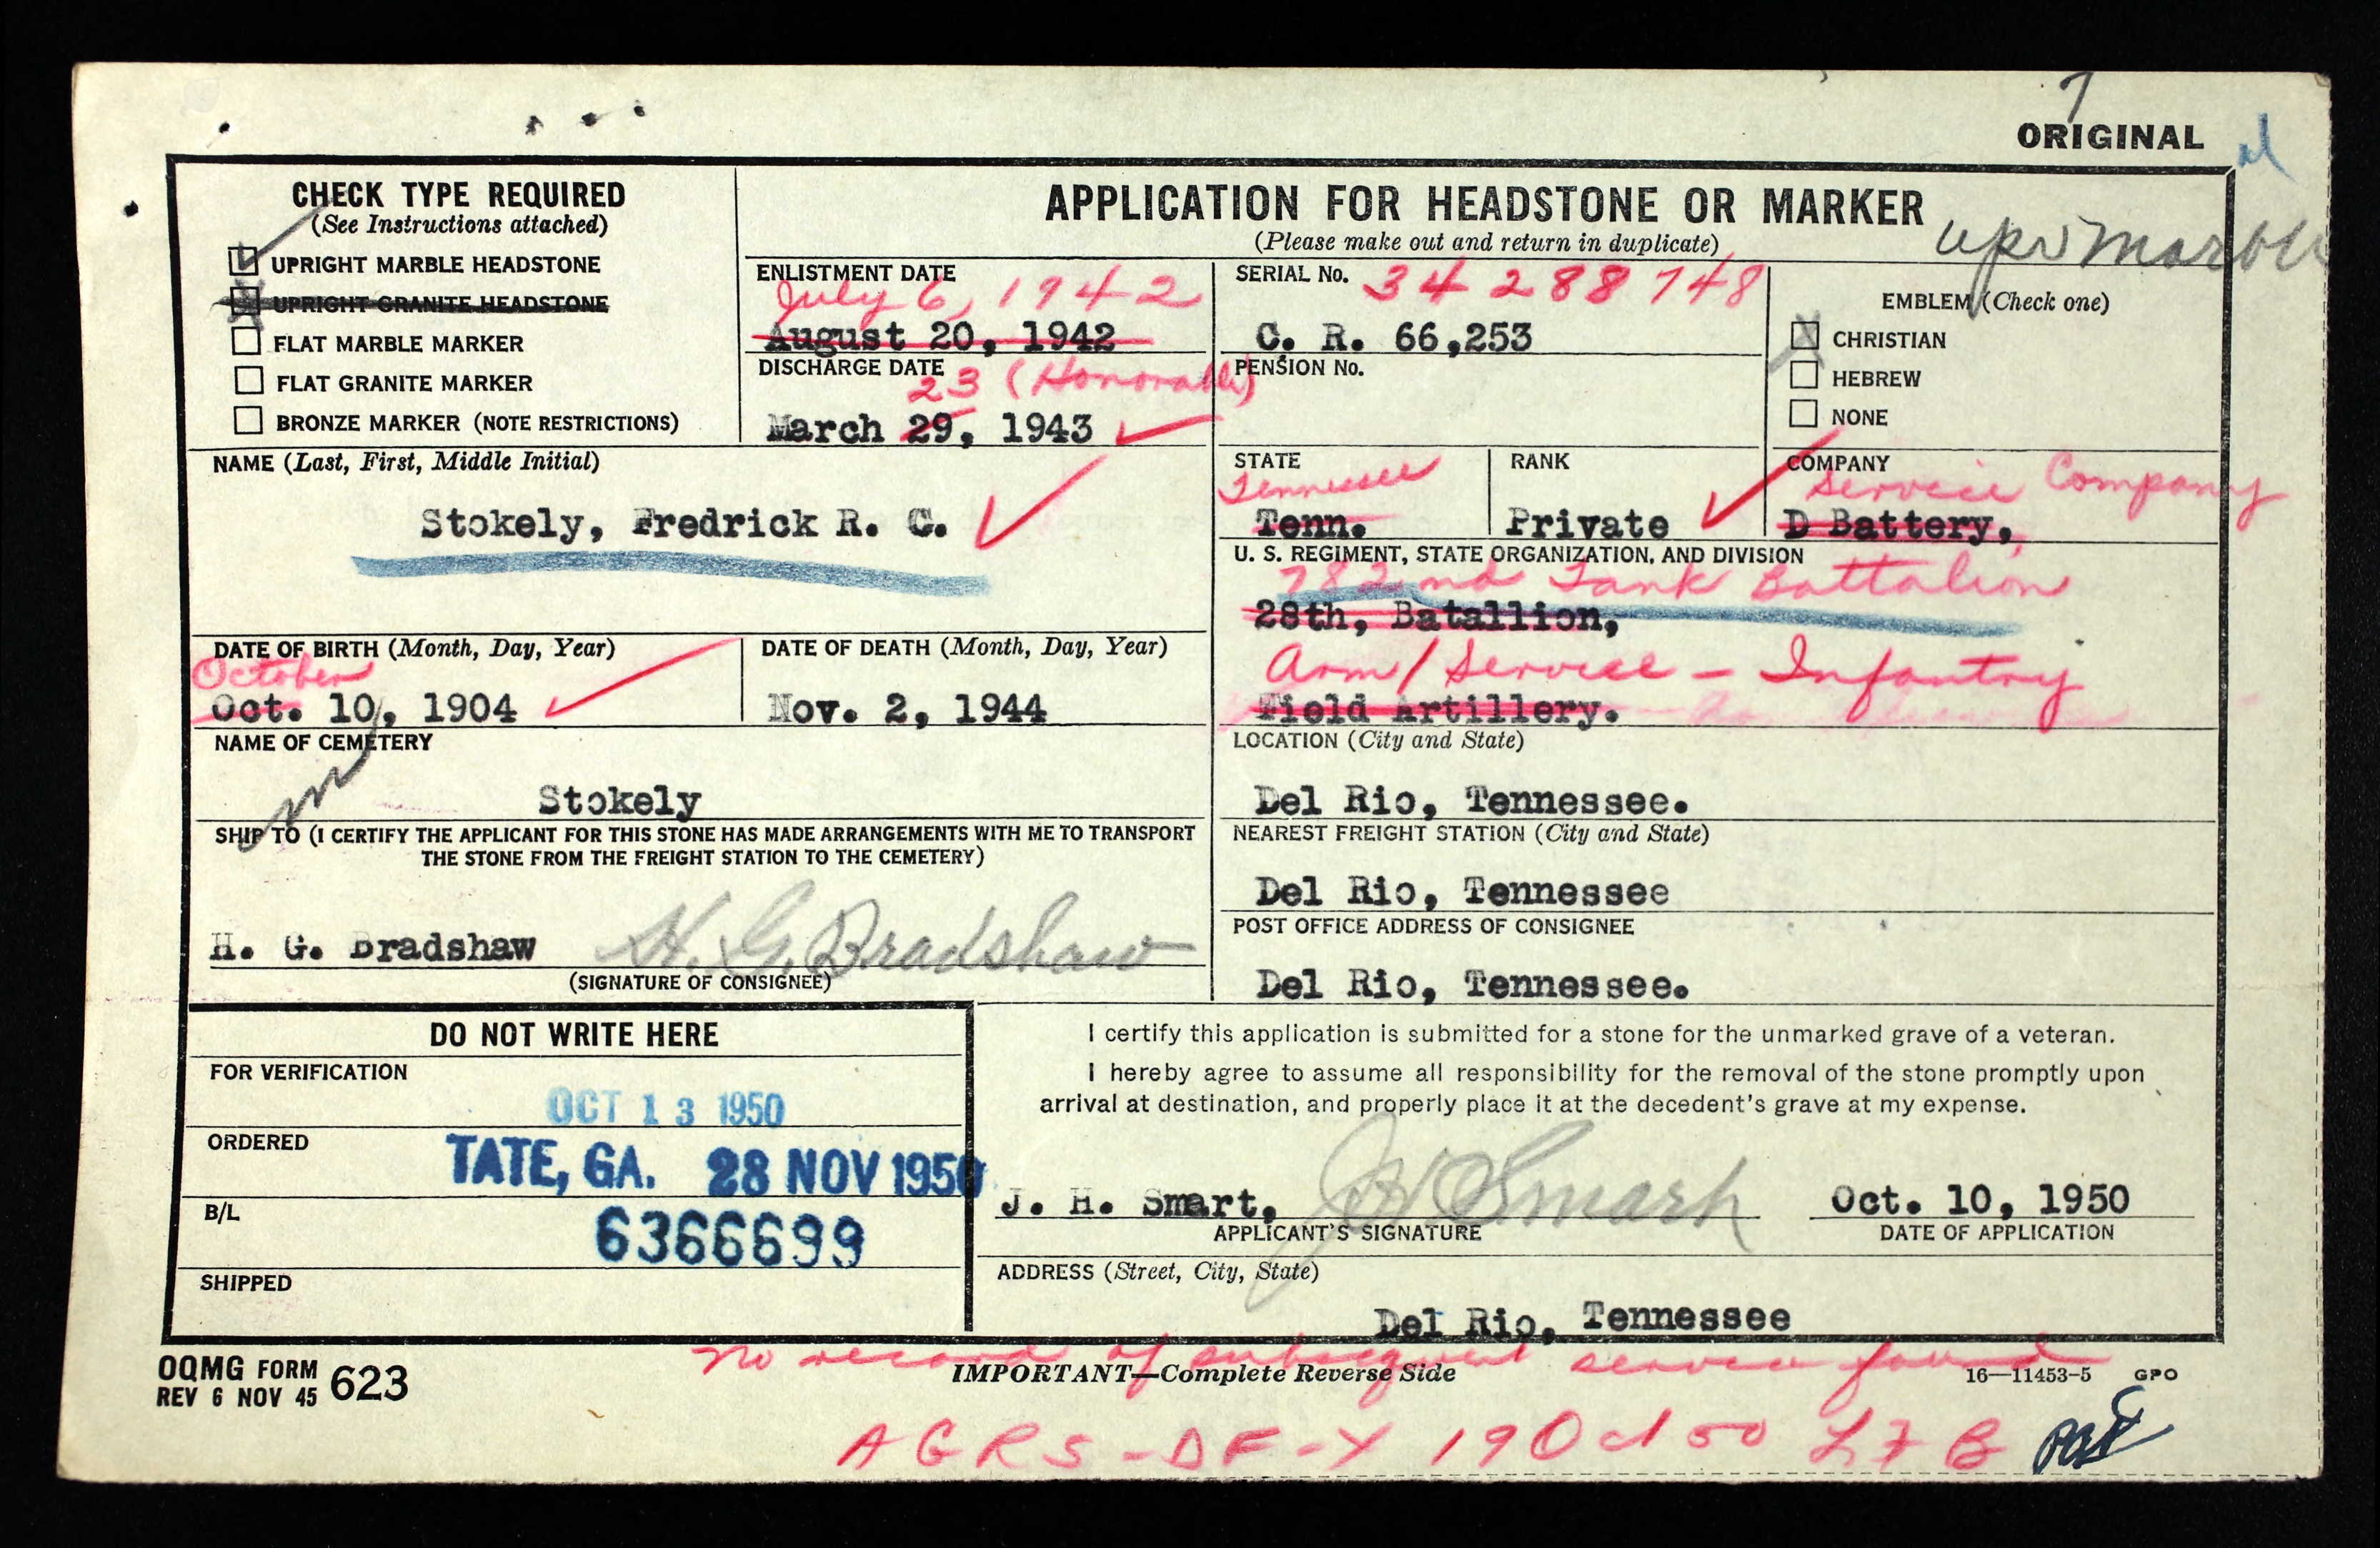 ORIGINAL
CHECK TYPE REQUIRED
(See Instructions attached)
UPRIGHT MARBLE HEADSTONE
UPRIGHT GRANITE HEADSTONE
FLAT MARBLE MARKER
FLAT GRANITE MARKER
BRONZE MARKER (NOTE RESTRICTIONS)
APPLICATION FOR HEADSTONE OR MARKER
(Please make out and return in duplicate)
up marble
ENLISTMENT DATE
July 6, 1942
August 20, 1942
DISCHARGE DATE
23 (Honorable)
March 29, 1943
SERIAL No.
34 288 748
C. R. 66,253
PENSION No.
EMBLEM (Check one)
CHRISTIAN
HEBREW
NONE
NAME (Last, First, Middle Initial)
Stokely, Fredrick R. C.
STATE
Tennessee
Tenn.
RANK
Private
COMPANY
Service Company
D Battery,
U. S. REGIMENT, STATE ORGANIZATION, AND DIVISION
782nd Tank Battalion
28th, Batallion,
Arm/Service - Infantry
Field Artillery.
DATE OF BIRTH (Month, Day, Year)
October
Oct. 10, 1904
DATE OF DEATH (Month, Day, Year)
Nov. 2, 1944
NAME OF CEMETERY
Stokely
LOCATION (City and State)
Del Rio, Tennessee.
SHIP TO (I CERTIFY THE APPLICANT FOR THIS STONE HAS MADE ARRANGEMENTS WITH ME TO TRANSPORT
THE STONE FROM THE FREIGHT STATION TO THE CEMETERY)
H. G. Bradshaw H. G. Bradshaw
(SIGNATURE OF CONSIGNEE)
NEAREST FREIGHT STATION (City and State)
Del Rio, Tennessee
POST OFFICE ADDRESS OF CONSIGNEE
Del Rio, Tennessee.
DO NOT WRITE HERE
FOR VERIFICATION
OCT 13 1950
ORDERED
TATE, GA. 28 NOV 1950
B/L
6366699
SHIPPED
I certify this application is submitted for a stone for the unmarked grave of a veteran.
I hereby agree to assume all responsibility for the removal of the stone promptly upon
arrival at destination, and properly place it at the decedent's grave at my expense.
J. H. Smart, J H Smart
APPLICANT'S SIGNATURE
Oct. 10, 1950
DATE OF APPLICATION
ADDRESS (Street, City, State)
Del Rio, Tennessee
No record of subsequent service found
OQMG FORM 623
REV 6 NOV 45
IMPORTANT—Complete Reverse Side
16—11453-5 GPO
AGRS-DF-Y 19 Oct 50 LFB